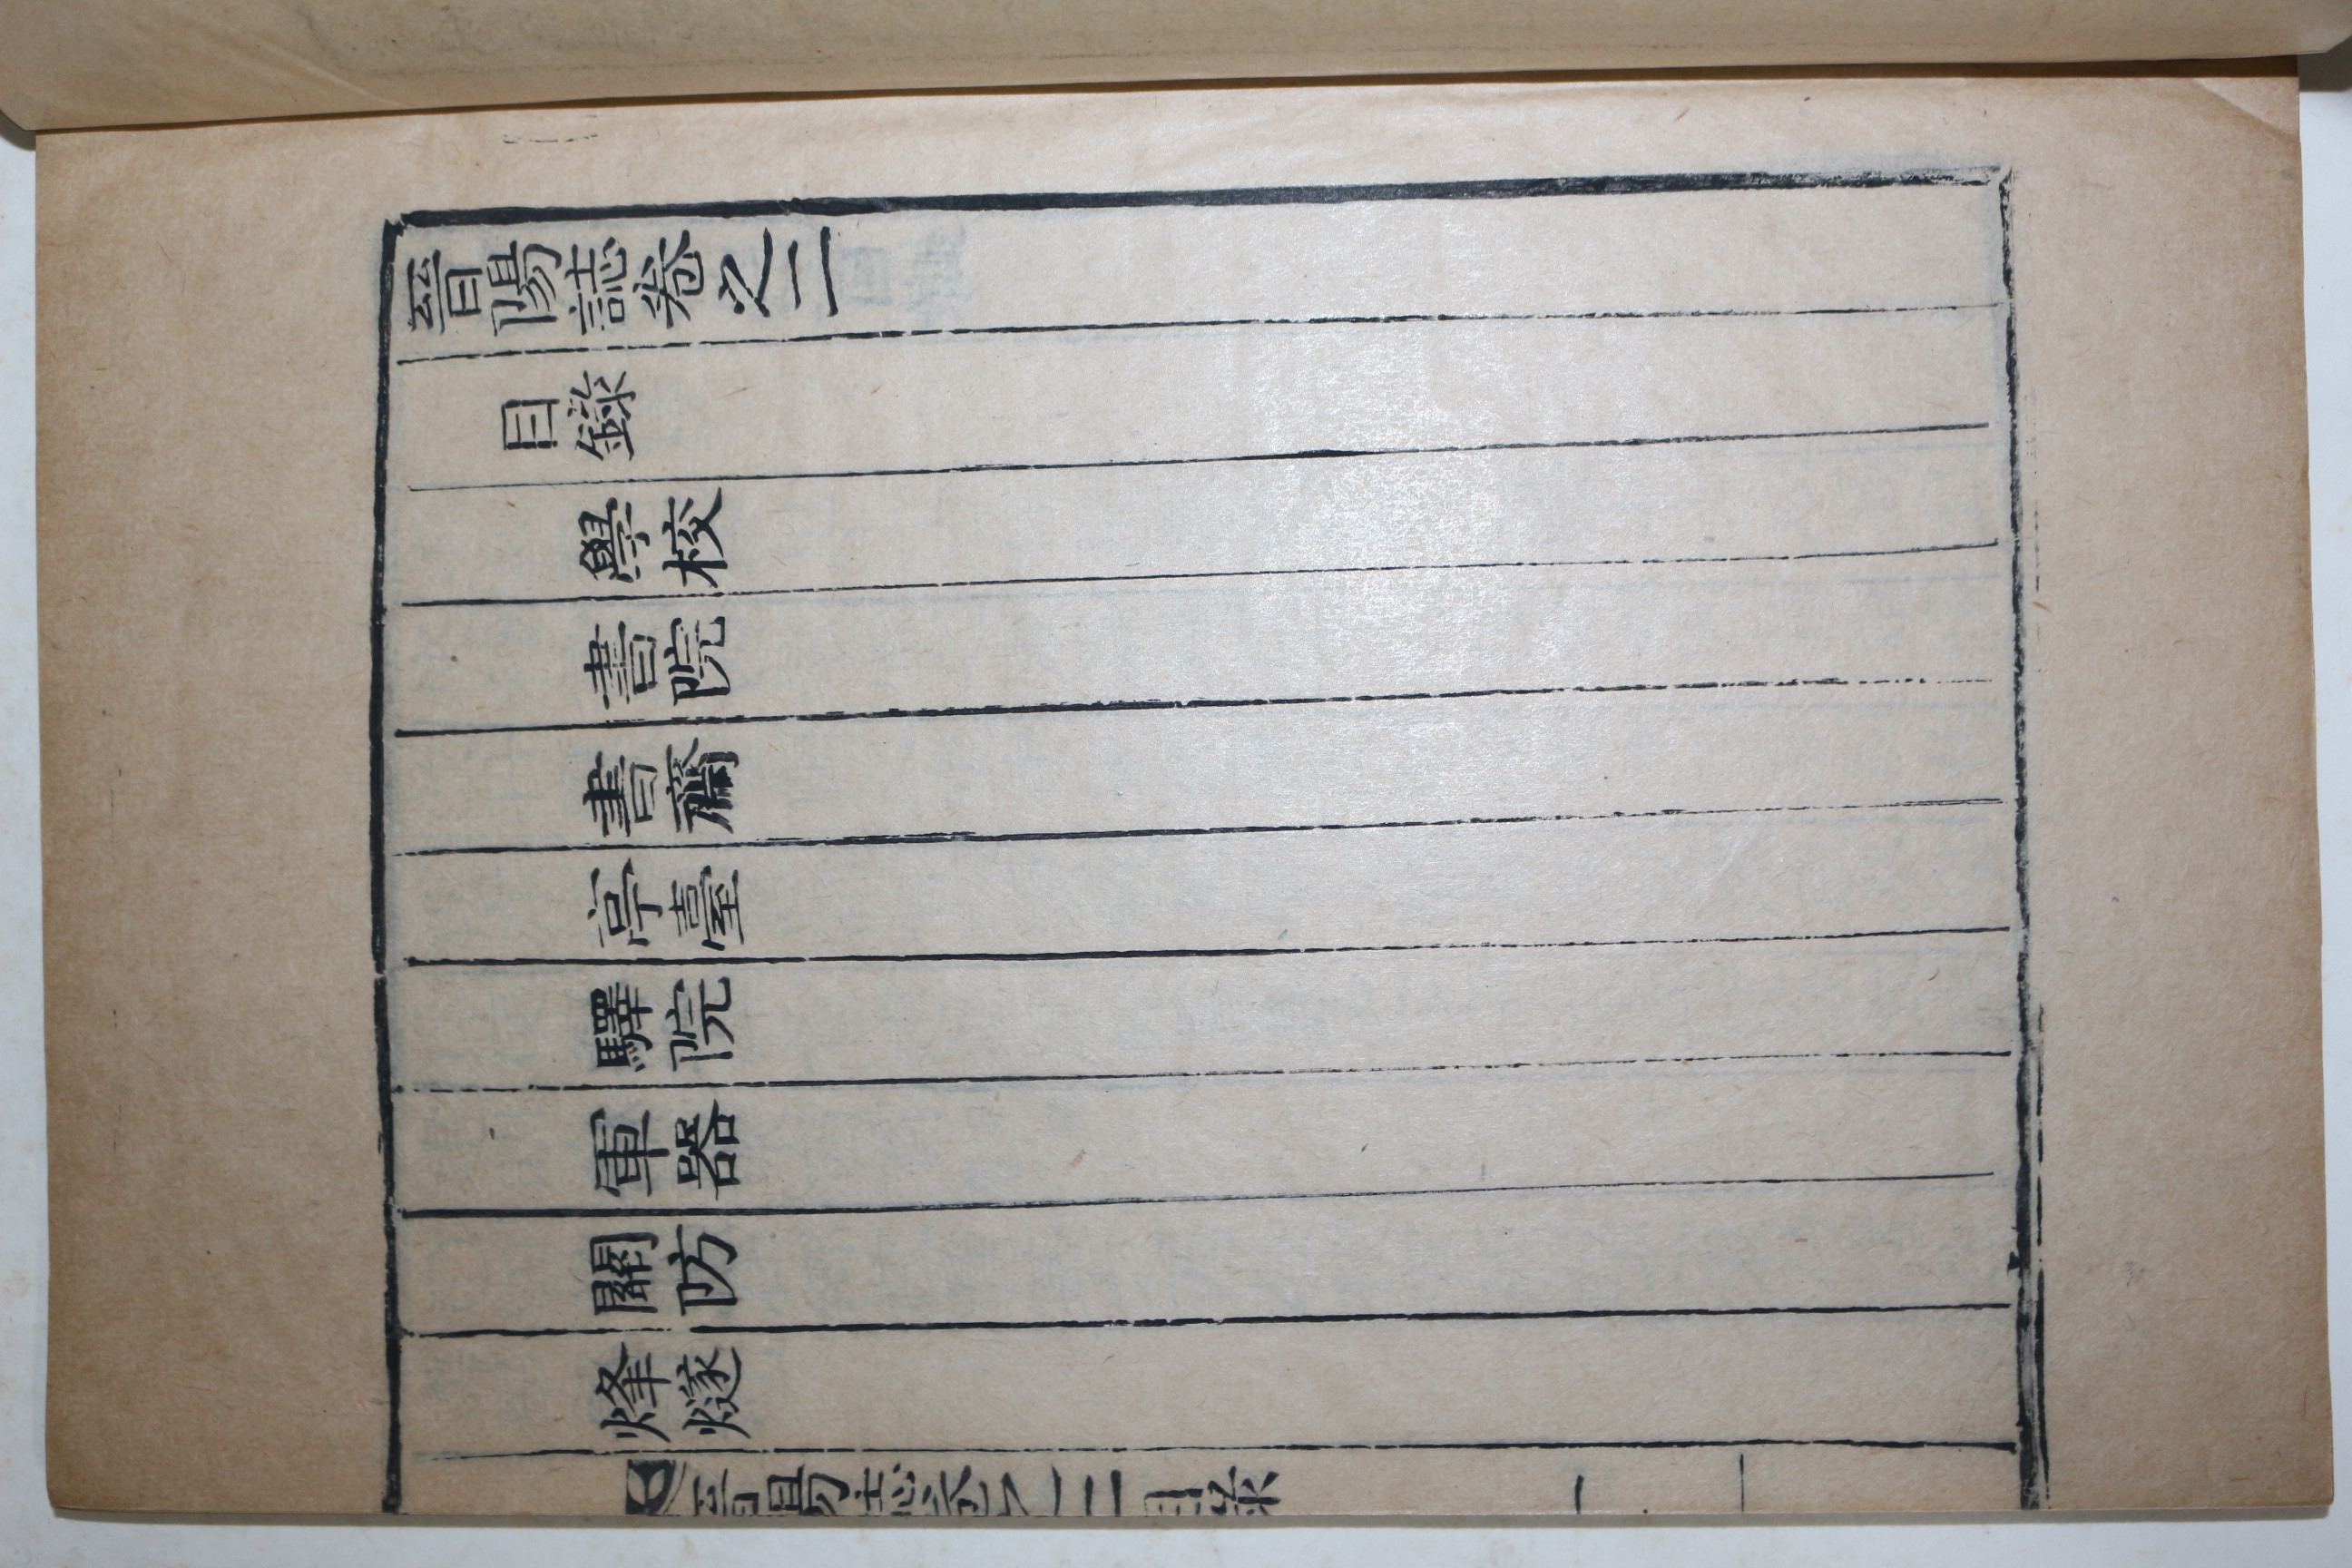 晉陽誌卷之二
目錄
學校
書院
書齋
亭臺
驛院
軍器
關防
烽燧
晉陽誌卷之二 目錄 一